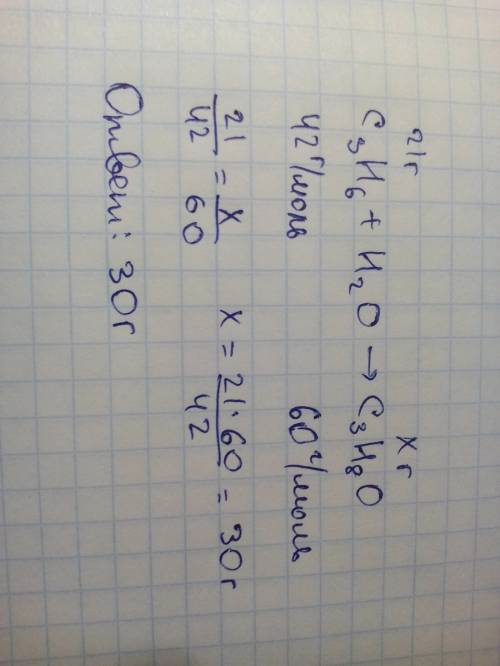 21г Xг
C₃H₆ + H₂O → C₃H₈O
42 г/моль 60 г/моль
21/42 = X/60 X = 21·60/42 = 30г
Ответ: 30г